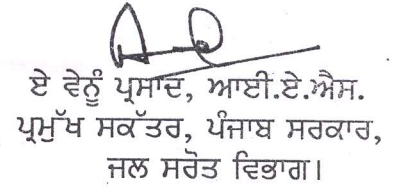 ਏ ਵੇਨੂੰ ਪ੍ਰਸਾਦ, ਆਈ.ਏ.ਐਸ.
ਪ੍ਰਮੁੱਖ ਸਕੱਤਰ, ਪੰਜਾਬ ਸਰਕਾਰ,
ਜਲ ਸਰੋਤ ਵਿਭਾਗ।